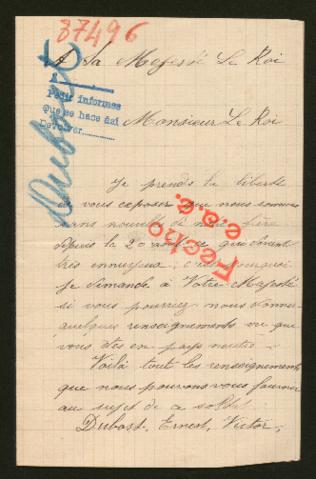 37496
A Sa Majesté Le Roi
Dubost
Pedir informes
Que se hace así
Devolver
Monsieur Le Roi
Je prends la liberté
de vous exposer que nous sommes
sans nouvelle de mon frère
depuis le 20 août ce qui devient
très ennuyeux; c'est pourquoi
je demande à Votre Majesté
si vous pourriez nous donner
quelques renseignements vu que
vous êtes en pays neutre.
Voilà tout les renseignements
que nous pouvons vous fournir
au sujet de ce soldat
Dubost, Ernest, Victor,
Fecho